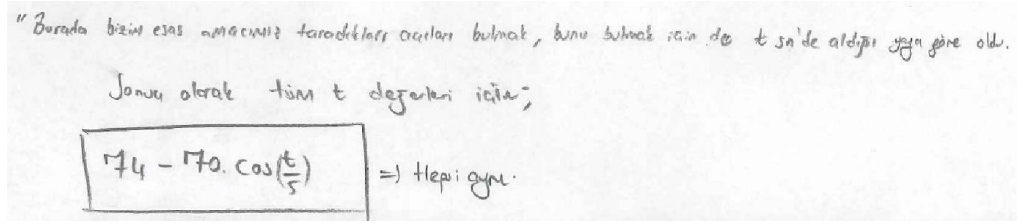 "Burada bizim esas amacımız taradıkları açıları bulmak, bunu bulmak için de t sn'de aldığı yaya göre oldu.
Sonuç olarak tüm t değerleri için;
74 - 70. cos(t/5) => Hepsi aynı.